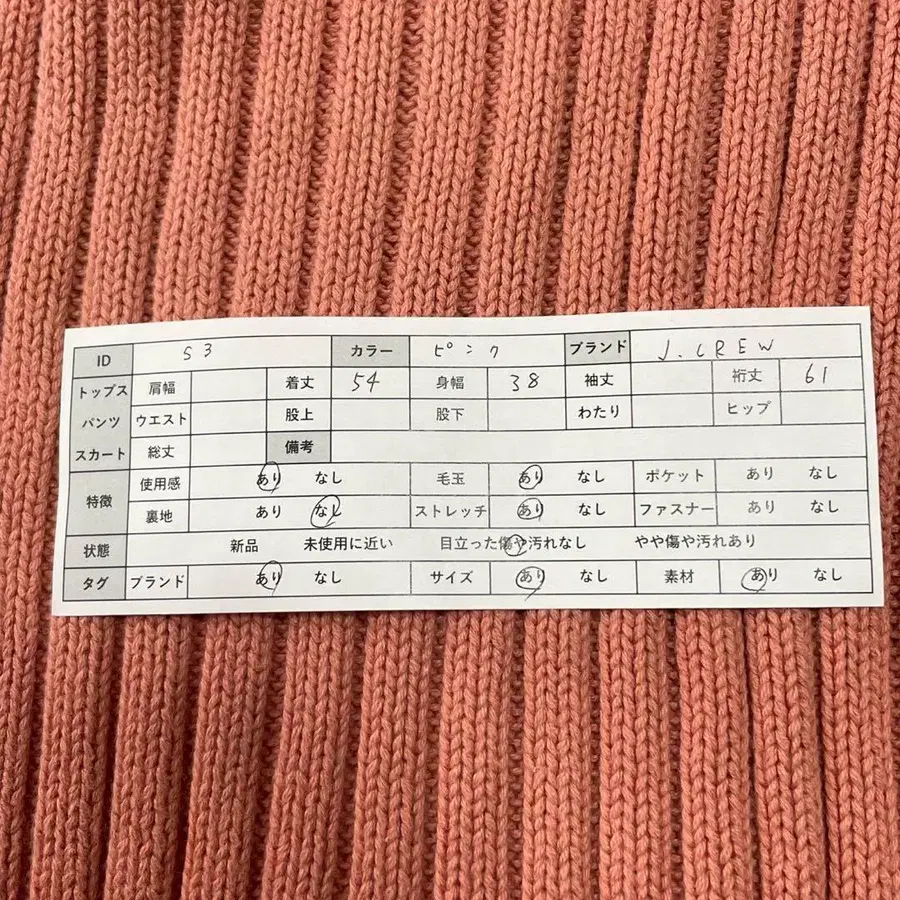 ID S3 カラー ピンク ブランド J.CREW
トップス 肩幅 着丈 54 身幅 38 袖丈 裄丈 61
パンツ ウエスト 股上 股下 わたり ヒップ
スカート 総丈 備考
特徴 使用感 あり なし 毛玉 あり なし ポケット あり なし
裏地 あり なし ストレッチ あり なし ファスナー あり なし
状態 新品 未使用に近い 目立った傷や汚れなし やや傷や汚れあり
タグ ブランド あり なし サイズ あり なし 素材 あり なし